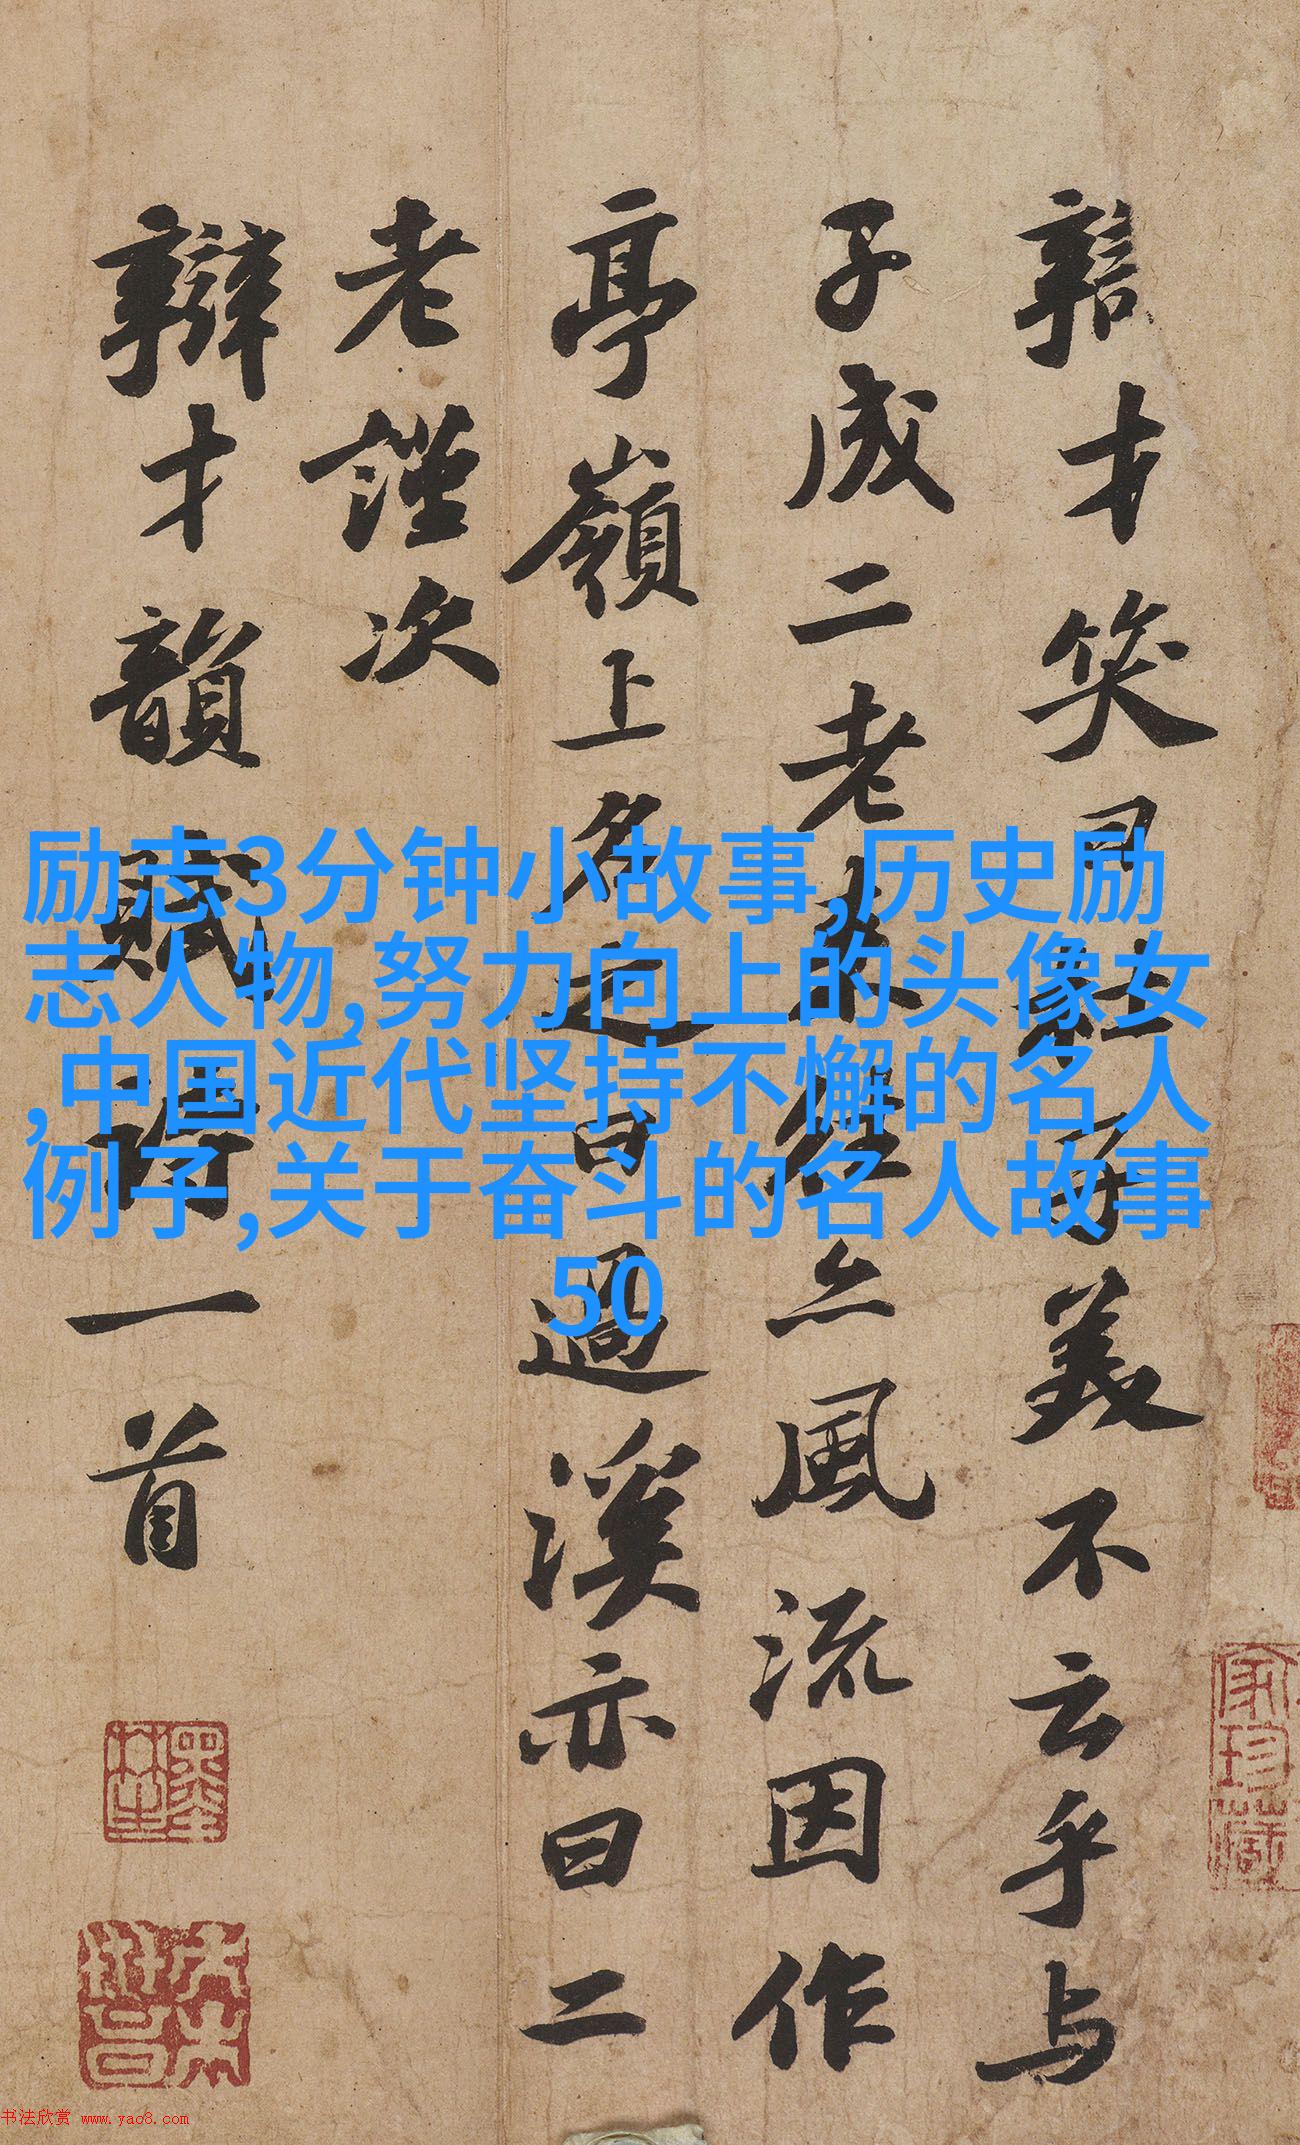 辯才笑曰杜子美不云乎与
子成二老来往亦風流因作
亭嶺上名之曰過溪亦曰二
老謹次
辯才韻賦詩一首
励志3分钟小故事,历史励
志人物,努力向上的头像女
,中国近代坚持不懈的名人
例子,关于奋斗的名人故事
50
家珍藏
书法欣赏 www.yac8.com